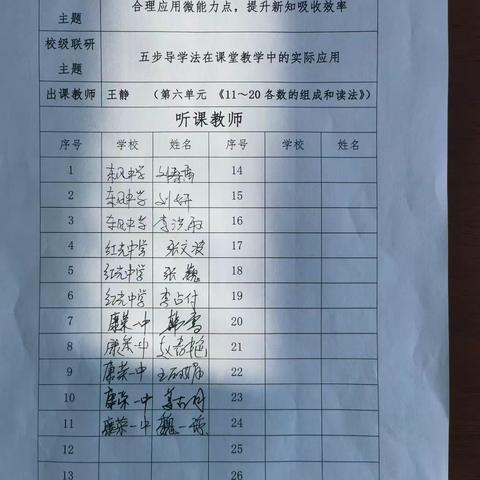 主题 合理应用微能力点，提升新知吸收效率
校级联研主题 五步导学法在课堂教学中的实际应用
出课教师 王静 （第六单元 《11～20各数的组成和读法》）
听课教师
序号 学校 姓名 序号 学校 姓名
1 东风中学 14
2 东风中学 刘妍 15
3 东风中学 16
4 红光中学 张文波 17
5 红光中学 张巍 18
6 红光中学 李占付 19
7 康荣一中 韩雪 20
8 康荣一中 21
9 康荣一中 22
10 康荣一中 23
11 康荣一中 24
12 25
13 26